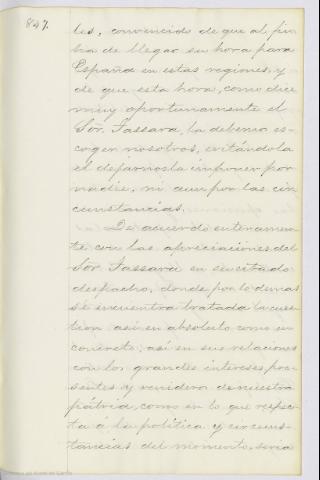 847.
les, convencido de que al fin
ha de llegar su hora para
España en estas regiones, y
de que esta hora, como dice
muy oportunamente el
Sor. Tassara, la debemos es-
coger nosotros, evitándola
el dejarnosla imponer por
nadie, ni aun por las cir
cunstancias.
De acuerdo enteramen-
te con las apreciaciones del
Sor. Tassara en su citado
despacho, donde por lo demas
se encuentra tratada la cues
tion asi en absoluto como en
concreto, asi en sus relaciones
con los grandes intereses, pre-
sentes y venideros de nuestra
pátria, como en lo que respec-
ta á la politica y circuns-
tancias del momento, seria